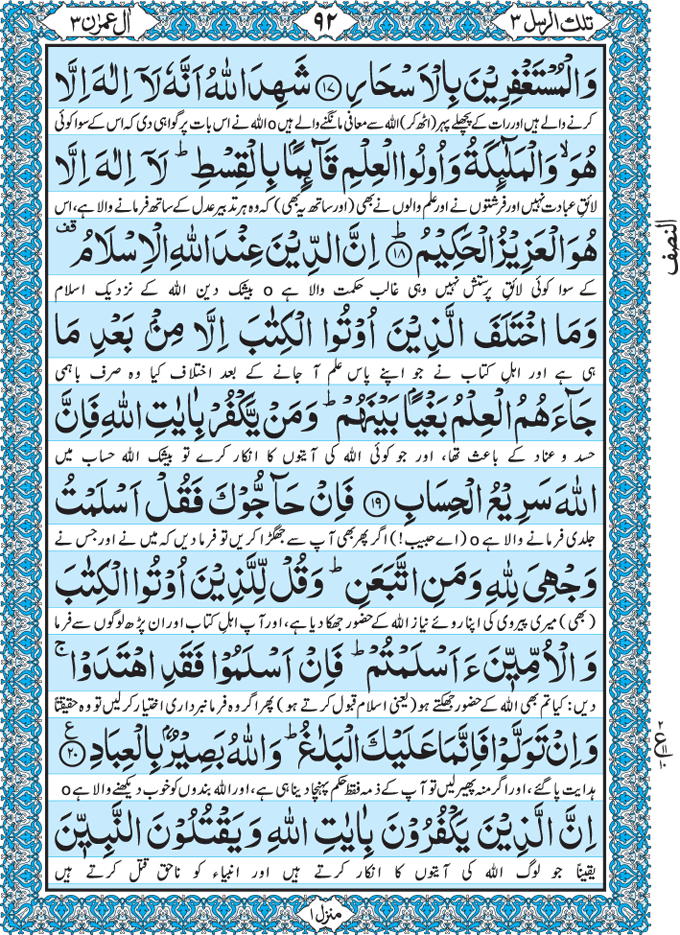 تلك الرسل ٣
٩٢
اٰل عمرٰن ٣
وَالْمُسْتَغْفِرِيْنَ بِالْاَسْحَارِ ﴿۱۷﴾ شَهِدَ اللّٰهُ اَنَّهٗ لَاۤ اِلٰهَ اِلَّا
کرنے والے ہیں اور رات کے پچھلے پہر (اٹھ کر) اللہ سے معافی مانگنے والے ہیں o اللہ نے اس بات پر گواہی دی کہ اس کے سوا کوئی
هُوَ ۙ وَالْمَلٰٓئِكَةُ وَاُولُوا الْعِلْمِ قَآئِمًۢا بِالْقِسْطِ ؕ لَاۤ اِلٰهَ اِلَّا
لائقِ عبادت نہیں اور فرشتوں نے اور علم والوں نے بھی (اور ساتھ یہ بھی) کہ وہ ہر تدبیر عدل کے ساتھ فرمانے والا ہے، اس
هُوَ الْعَزِيْزُ الْحَكِيْمُ ؕ﴿۱۸﴾ اِنَّ الدِّيْنَ عِنْدَ اللّٰهِ الْاِسْلَامُ ۟ قف
کے سوا کوئی لائقِ پرستش نہیں وہی غالب حکمت والا ہے o بیشک دین اللہ کے نزدیک اسلام
وَمَا اخْتَلَفَ الَّذِيْنَ اُوْتُوا الْكِتٰبَ اِلَّا مِنْۢ بَعْدِ مَا
ہی ہے اور اہلِ کتاب نے جو اپنے پاس علم آ جانے کے بعد اختلاف کیا وہ صرف باہمی
جَآءَهُمُ الْعِلْمُ بَغْيًۢا بَيْنَهُمْ ؕ وَمَنْ يَّكْفُرْ بِاٰيٰتِ اللّٰهِ فَاِنَّ
حسد و عناد کے باعث تھا، اور جو کوئی اللہ کی آیتوں کا انکار کرے تو بیشک اللہ حساب میں
اللّٰهَ سَرِيْعُ الْحِسَابِ ﴿۱۹﴾ فَاِنْ حَآجُّوْكَ فَقُلْ اَسْلَمْتُ
جلدی فرمانے والا ہے o (اے حبیب!) اگر پھر بھی آپ سے جھگڑا کریں تو فرما دیں کہ میں نے اور جس نے
وَجْهِیَ لِلّٰهِ وَمَنِ اتَّبَعَنِ ؕ وَقُلْ لِّلَّذِيْنَ اُوْتُوا الْكِتٰبَ
(بھی) میری پیروی کی اپنا روئے نیاز اللہ کے حضور جھکا دیا ہے، اور آپ اہلِ کتاب اور ان پڑھ لوگوں سے فرما
وَالْاُمِّيّٖنَ ءَاَسْلَمْتُمْ ؕ فَاِنْ اَسْلَمُوْا فَقَدِ اهْتَدَوْا ۚ
دیں: کیا تم بھی اللہ کے حضور جھکتے ہو (یعنی اسلام قبول کرتے ہو) پھر اگر وہ فرمانبرداری اختیار کر لیں تو وہ حقیقتًا
وَاِنْ تَوَلَّوْا فَاِنَّمَا عَلَيْكَ الْبَلٰغُ ؕ وَاللّٰهُ بَصِيْرٌۢ بِالْعِبَادِ ﴿۲۰﴾ ع
ہدایت پا گئے، اور اگر منہ پھیر لیں تو آپ کے ذمہ فقط حکم پہنچا دینا ہی ہے، اور اللہ بندوں کو خوب دیکھنے والا ہے o
اِنَّ الَّذِيْنَ يَكْفُرُوْنَ بِاٰيٰتِ اللّٰهِ وَيَقْتُلُوْنَ النَّبِيّٖنَ
یقیناً جو لوگ اللہ کی آیتوں کا انکار کرتے ہیں اور انبیاء کو ناحق قتل کرتے ہیں
منزل ١
النصف
ع